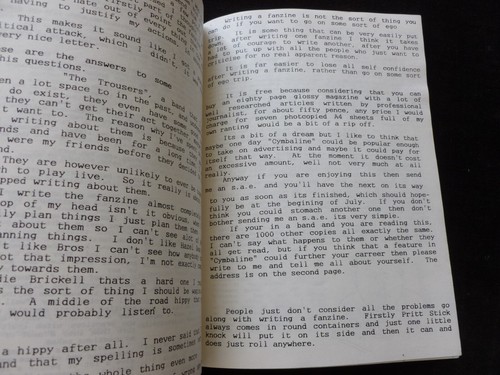 irstly part of
hate out of every
having to justify my existen
This makes it sound like
itical attack, which I didn't
very nice letter.
se are the answers to some
questions.
"The Trousers", a band
en a lot space to in the past
do exist, they even have son
they can't get their act together
t want to. The reason why I
writing about them is because
ends and have been for a long
were my friends before they
They are however unlikely to ever be
to play live. So it really is
pped writing about them.
I write the fanzine almost comple
op of my head isn't it obvious
ly plan things I just plan the
about them so I can't see alot
nning things. I don't like Hazel
't like Bros I can't see how anybody
ot that impression, I'm not exactly
y towards them.
die Brickell thats a hard one I
s the sort of thing I should be
. A middle of the road hippy
would probably listen to.
a hippy after all. I never said
and that my spelling is sometimes
the whole thing even more
Writing a fanzine is not the sort of thing you
can do if you want to go on some sort of ego
trip.
It is some thing that can be very easily put
down, after writing one fanzine I think it takes
a lot of courage to write another, after you have
had to put up with all the people who just want to
criticise for no real apparent reason.
It is far easier to loose all self confidence
after writing a fanzine, rather than go on some sort
of ego trip.
It is free because considering that you can
buy an eighty page glossy magazine with a lot of
well researched articles written by professional
journalist, for about fifty pence, any price I would
charge for seven photocopied A4 sheets full of my
own ranting would be a bit of a rip off.
Its a bit of a dream but I like to think that
maybe one day "Cymbaline" could be popular enough
to take on advertising and maybe it could pay for
itself that way. At the moment it doesn't cost
an excessive amount, well not very much at all
really.
Anyway if you are enjoying this then send
me an s.a.e. and you'll have the next on its way
to you as soon as its finished, which should hope-
fully be at the begining of July. If you don't
think you could stomach another one then don't
bother sending me an s.a.e. its very simple.
If your in a band and you are reading this,
there are 1000 other copies all exactly the same.
I can't say what happens to them or whether they
all get read, but if you think that a feature in
"Cymbaline" could further your carreer then please
write to me and tell me all about yourself. The
address is on the second page.
People just don't consider all the problems go
along with writing a fanzine. Firstly Pritt Stick
always comes in round containers and just one little
knock will put it on its side and then it can and
does just roll anywhere.